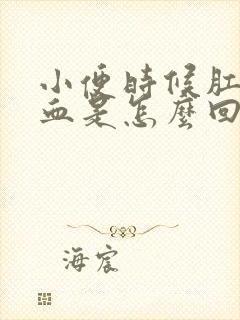 小便時候肛
血是怎麼回
海宸